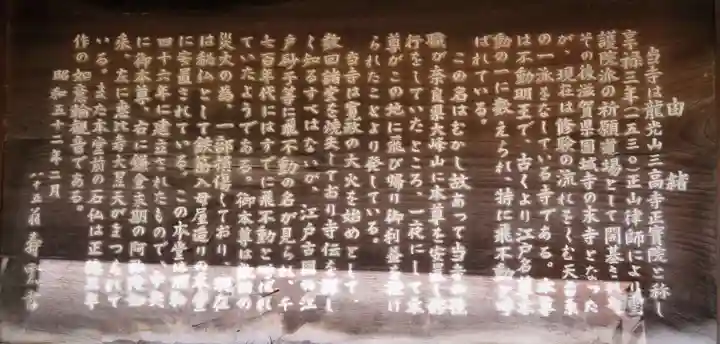 由緒
当寺は龍光山三高寺正寶院と称し
享禄三年(一五三〇)正山律師により
護院派の祈願道場として開基さ
その後滋賀県園城寺の末寺となった
が、現在は修験の流れをくむ天台系
の一派をなしている寺である。本尊
は不動明王で、古くより江戸名
動の一に数えられ、特に飛不動
ばれている。
この名はむかし故あって当寺の住
職が奈良県大峰山に本尊を安置し
行をしていたところ、一夜にして本
尊がこの地に飛び帰り御利益を授け
られたことより発している。
当寺は寛政の大火を始めとして、
数回諸堂を焼失しており寺伝を詳し
く知るすべはないが、江戸古図の江
戸砂子等に飛不動の名が見られ、千
七百年代にはすでに飛不動と呼ばれ
ていたようである。御本尊は
災火の為、一部損傷しており、現在
は秘仏として鉄筋入母屋造りの本堂
に安置されている。この本堂は昭和
四十六年に建立されたもので、中央
に御本尊、右に鎌倉末期の阿弥陀如
来、左に恵比寿大黒天がまつられて
いる。また本堂前の石仏は正徳五年
作の如意輪観音である。
昭和五十二年二月